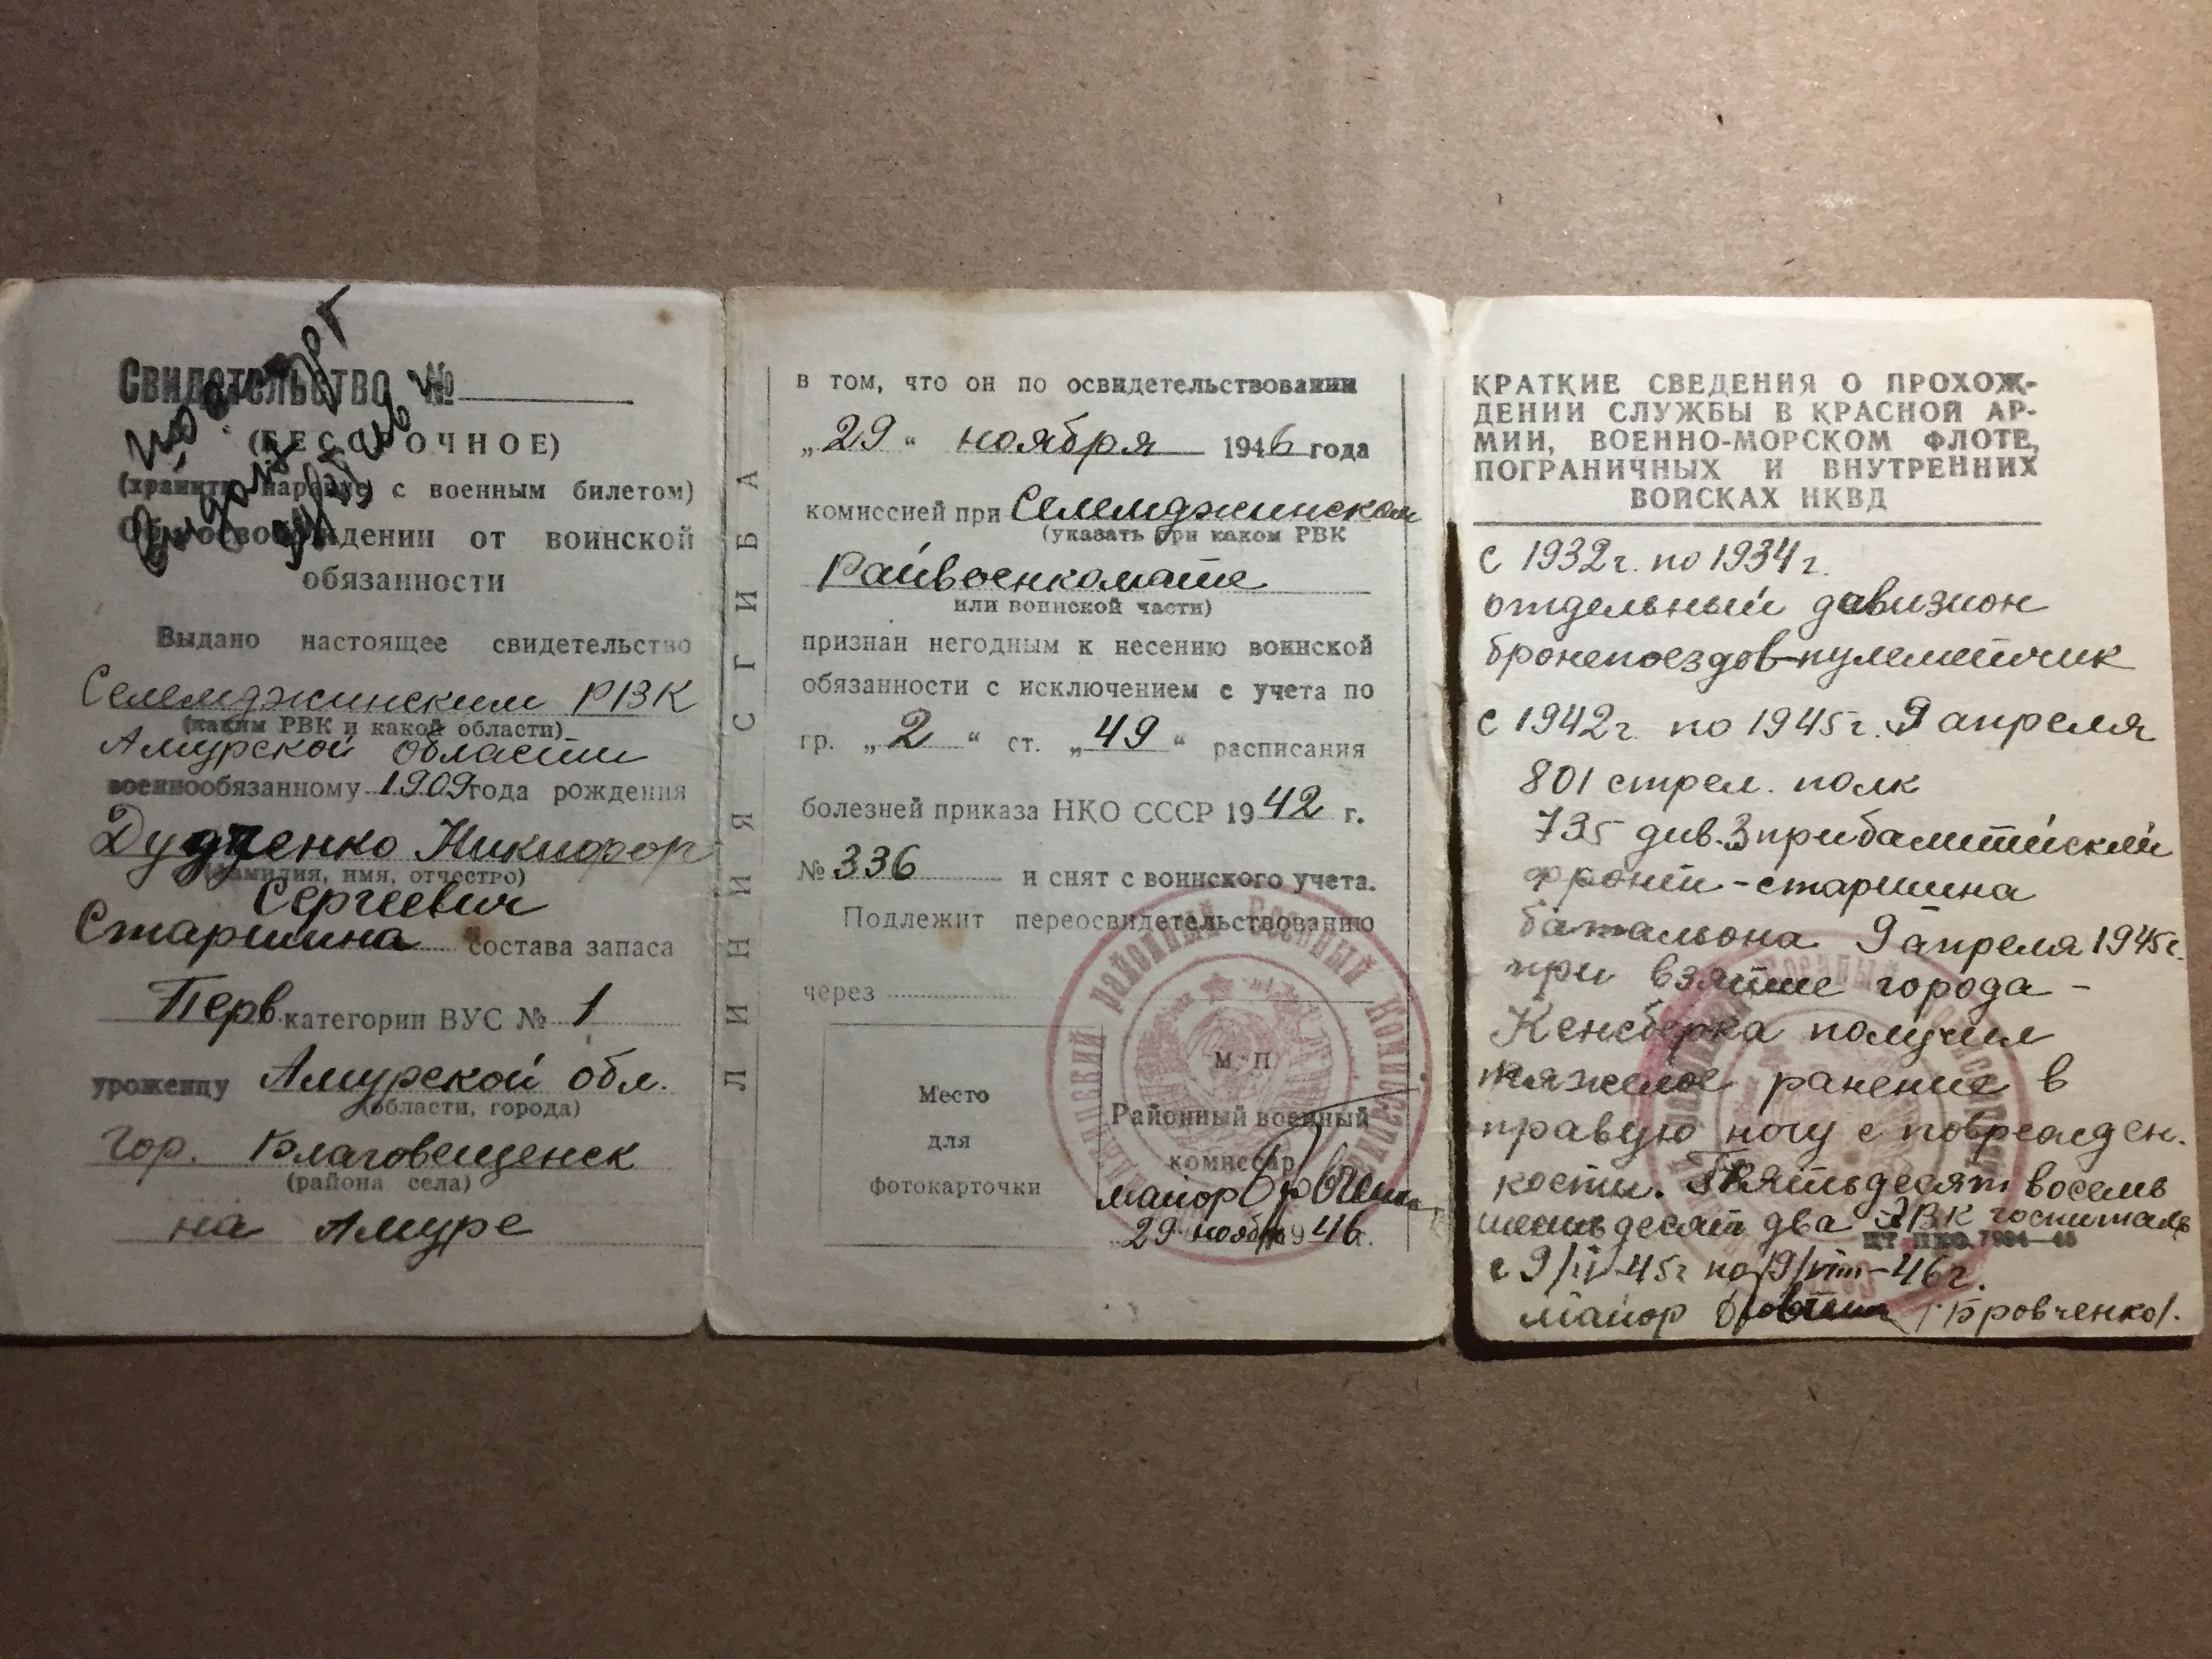 Свидетельство №
(БЕССРОЧНОЕ)
(хранить наравне с военным билетом)
Об освобождении от воинской
обязанности
Выдано настоящее свидетельство
Селемджинским РВК
(каким РВК и какой области)
Амурской области
военнообязанному 1909 года рождения
Дудченко Никифор
(фамилия, имя, отчество)
Сергеевич
Старшина состава запаса
Перв категории ВУС № 1
уроженцу Амурской обл.
(области, города)
гор. Благовещенск
(района села)
на Амуре
ЛИНИЯ СГИБА
в том, что он по освидетельствовании
„29“ ноября 1946 года
комиссией при Селемджинском
(указать при каком РВК
Райвоенкомате
или воинской части)
признан негодным к несению воинской
обязанности с исключением с учета по
гр. „2“ ст. „49“ расписания
болезней приказа НКО СССР 1942 г.
№ 336 и снят с воинского учета.
Подлежит переосвидетельствованию
через
Место
для
фотокарточки
М. П.
Районный военный
комиссар
майор
29 ноября 1946 г.
КРАТКИЕ СВЕДЕНИЯ О ПРОХОЖ-
ДЕНИИ СЛУЖБЫ В КРАСНОЙ АР-
МИИ, ВОЕННО-МОРСКОМ ФЛОТЕ,
ПОГРАНИЧНЫХ И ВНУТРЕННИХ
ВОЙСКАХ НКВД
с 1932г. по 1934г.
отдельный дивизион
бронепоездов-пулеметчик
с 1942г. по 1945г. 9 апреля
801 стрел. полк
735 див. 3 прибалтийский
фронт - старшина
батальона 9 апреля 1945г.
при взятие города -
Кенсберка получил
тяжелое ранение в
правую ногу с поврежден.
кости. Пятьдесят восемь
шестьдесят два госпиталь
ЦТ ПКО. 7984—45
с 9/IV-45г по 19/VIII-46г.
майор /Бровченко/.